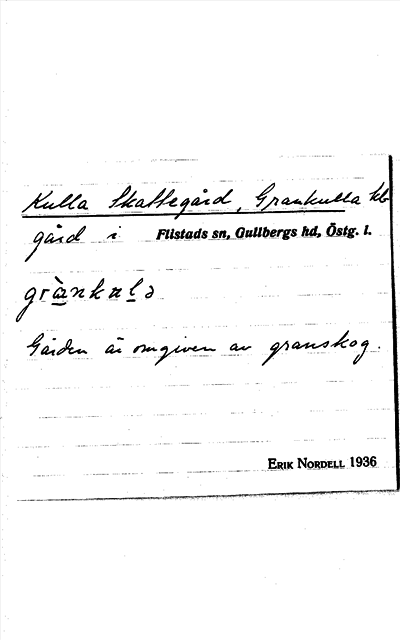 Kulla Skattegård, Grankulla kb
gård i Flistads sn, Gullbergs hd, Östg. l.
grànkulə
Gården är omgiven av granskog.
ERIK NORDELL 1936